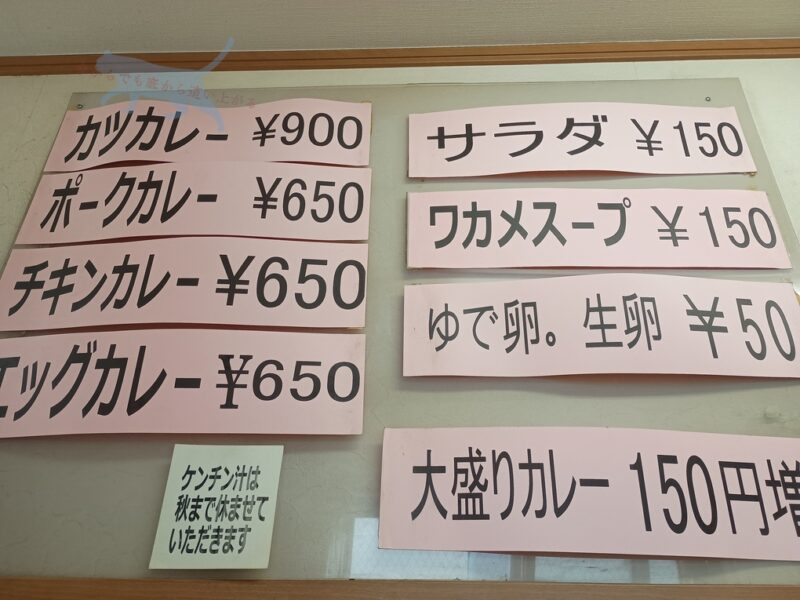 カツカレー ¥900
ポークカレー ¥650
チキンカレー ¥650
エッグカレー ¥650
ケンチン汁は
秋まで休ませて
いただきます
サラダ ¥150
ワカメスープ ¥150
ゆで卵。生卵 ¥50
大盛りカレー 150円増